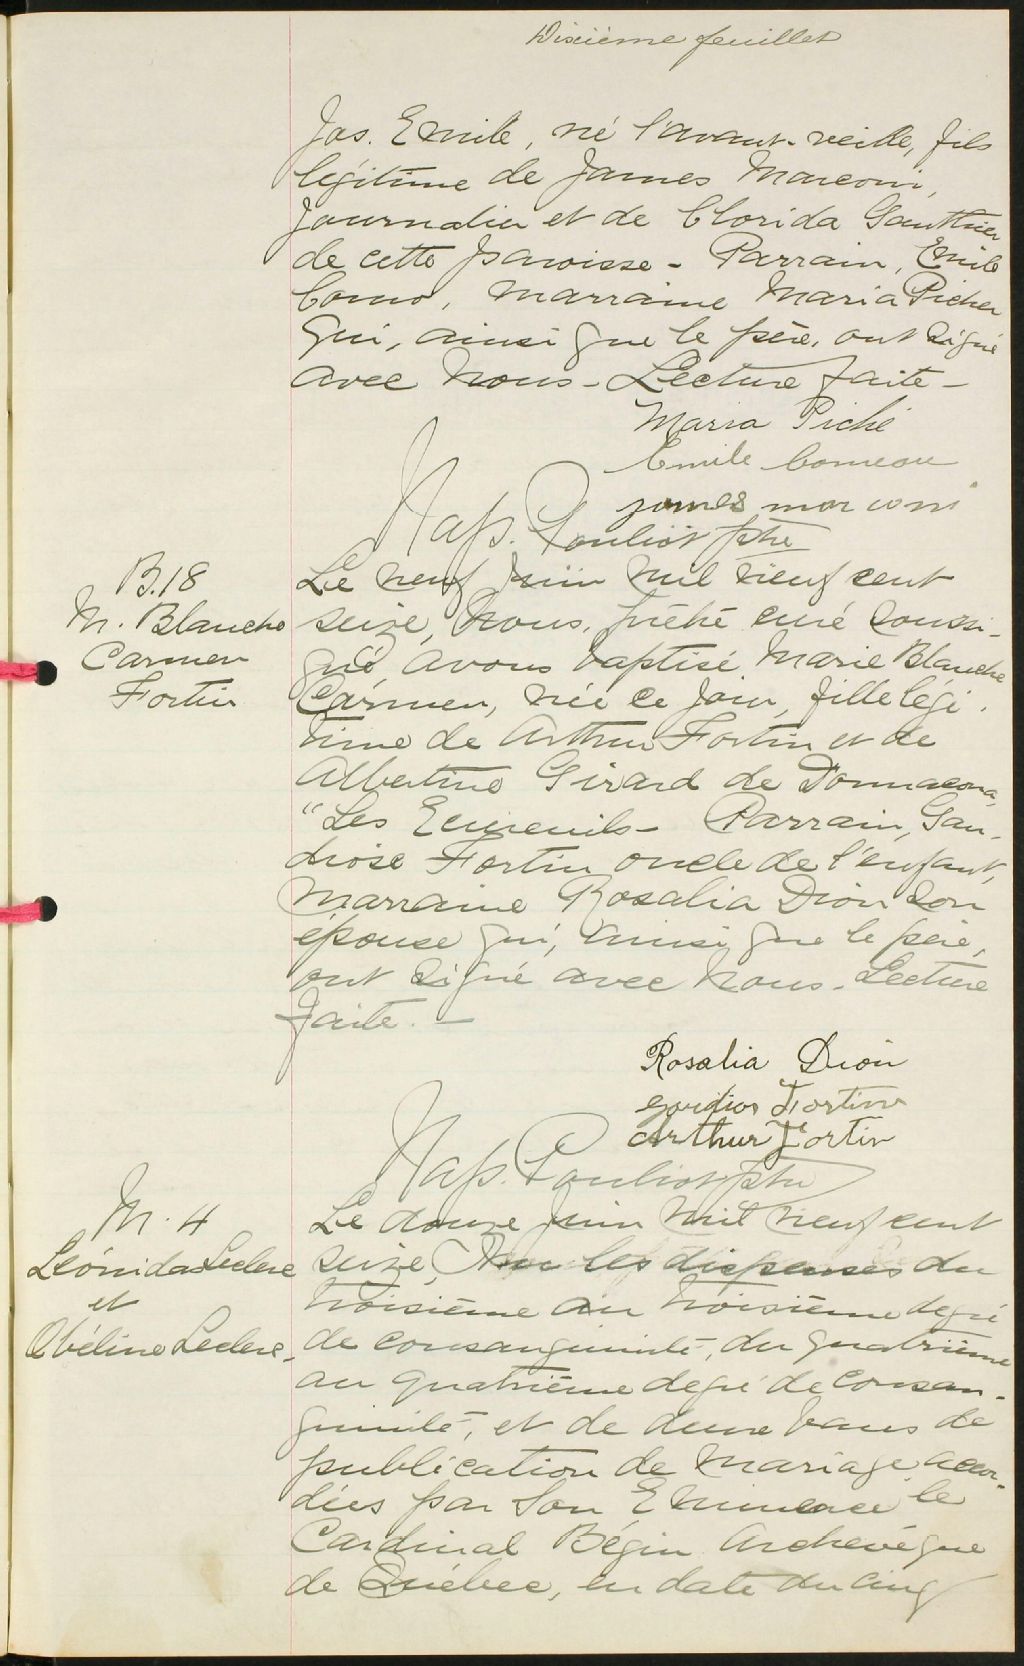 Dixième feuillet
Jos. Emile, né l'avant-veille, fils
légitime de James Marconi,
journalier et de Clorida Gauthier
de cette paroisse - Parrain, Emile
Como, marraine Maria Picher
qui, ainsi que le père, ont signé
avec Nous - Lecture faite -
Maria Piché
Emile Comeau
james marconi
Nap. Pouliot ptre
B.18
M. Blanche
Carmen
Fortin
Le neuf juin mil neuf cent
seize, Nous, prêtre curé soussi-
gné avons baptisé Marie Blanche
Carmen, née ce jour, fille légi-
time de Arthur Fortin et de
Albertine Girard de Donnacona,
"Les Ecureuils - Parrain, Gau-
diose Fortin oncle de l'enfant,
marraine Rosalia Dion son
épouse qui, ainsi que le père,
ont signé avec Nous. Lecture
faite. -
Rosalia Dion
Fortin
Arthur Fortin
Nap. Pouliot ptre
M. 4
Léonidas Leclerc
et
Obéline Leclerc
Le douze juin mil neuf cent
seize, Vu les dispenses du
troisième au troisième degré
de consanguinité, du quatrième
au quatrième degré de consan-
guinité, et de deux bans de
publication de mariage accor-
dées par Son Eminence le
Cardinal Bégin Archevêque
de Québec, en date du cinq